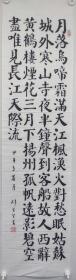 月落烏啼霜滿天江楓漁火對愁眠姑蘇
城外寒山寺夜半鐘聲到客船故人西辭
黃鶴樓煙花三月下揚州孤帆遠影碧空
盡唯見長江天際流